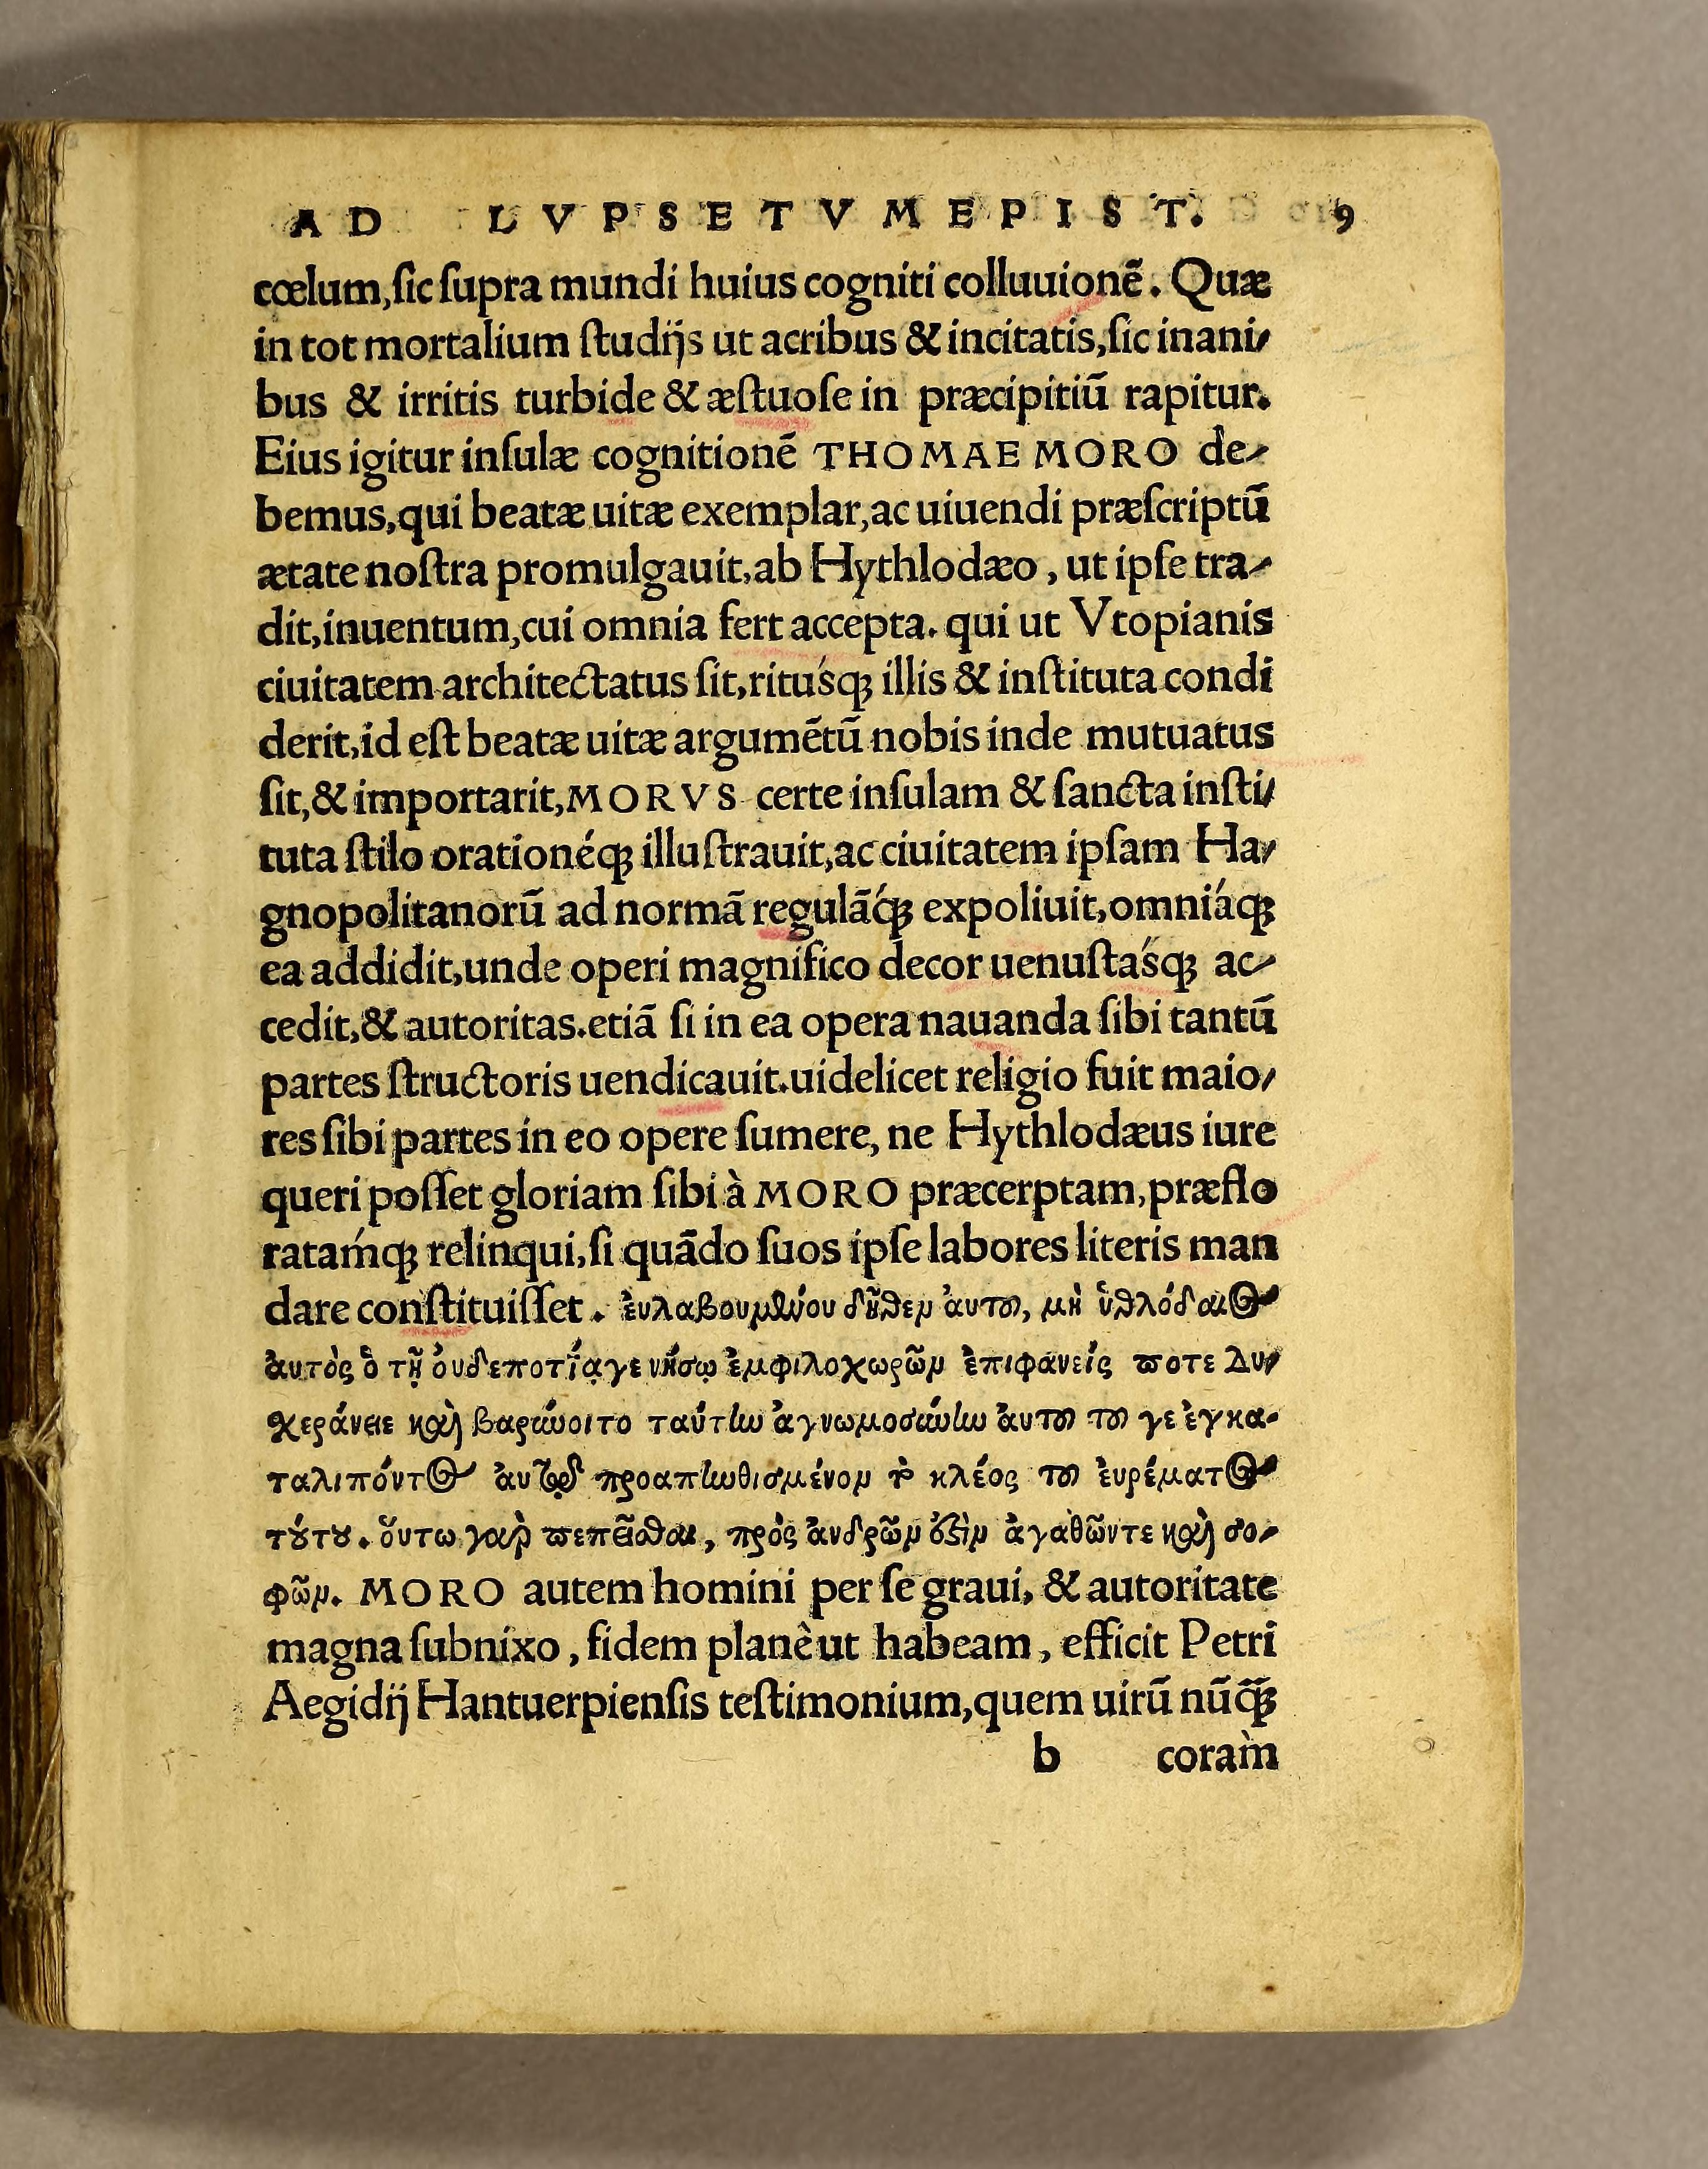 AD LVPSETVM EPIST. 9
cœlum,ſic ſupra mundi huius cogniti colluuionẽ. Quæ
in tot mortalium ſtudijs ut acribus & incitatis,ſic inani/
bus & irritis turbide & æſtuoſe in præcipitiũ rapitur.
Eius igitur inſulæ cognitionẽ THOMAE MORO de/
bemus,qui beatæ uitæ exemplar,ac uiuendi præſcriptũ
ætate noſtra promulgauit,ab Hythlodæo, ut ipſe tra/
dit,inuentum,cui omnia fert accepta. qui ut Vtopianis
ciuitatem architectatus ſit,ritusq́; illis & inſtituta condi
derit,id eſt beatæ uitæ argumẽtũ nobis inde mutuatus
ſit,& importarit,MORVS certe inſulam & ſancta inſti/
tuta ſtilo orationéq; illuſtrauit,ac ciuitatem ipſam Ha/
gnopolitanorũ ad normã regulãq́; expoliuit,omniáq;
ea addidit,unde operi magnifico decor uenuſtasq́; ac/
cedit,& autoritas.etiã ſi in ea opera nauanda ſibi tantũ
partes ſtructoris uendicauit.uidelicet religio fuit maio/
res ſibi partes in eo opere ſumere, ne Hythlodæus iure
queri poſſet gloriam ſibi à MORO præcerptam,præflo
ratamq́; relinqui,ſi quãdo ſuos ipſe labores literis man
dare conſtituiſſet. ἐυλαβουμένου δῆθεν ἀυτοῦ, μὴ ὑθλόδαιος
ἀυτὸς ὁ τῇ ὀυδεποτίᾳ γε νήσῳ ἐμφιλοχωρῶν ἐπιφανείς ποτε Δυ/
χεράνειε καὶ βαρύνοιτο ταύτην ἀγνωμοσύνην ἀυτοῦ τοῦ γε ἐγκα-
ταλιπόντος ἀυτῷ προαπηνθισμένον τὸ κλέος τοῦ ἑυρέματος
τούτου. ὅυτω γὰρ πεπεῖσθαι, πρὸς ἀνδρῶν ὅξιν ἀγαθῶντε καὶ σο-
φῶν. MORO autem homini per ſe graui, & autoritate
magna ſubnixo, fidem planè ut habeam, efficit Petri
Aegidij Hantuerpienſis teſtimonium,quem uirũ nũq̃;
b coràm